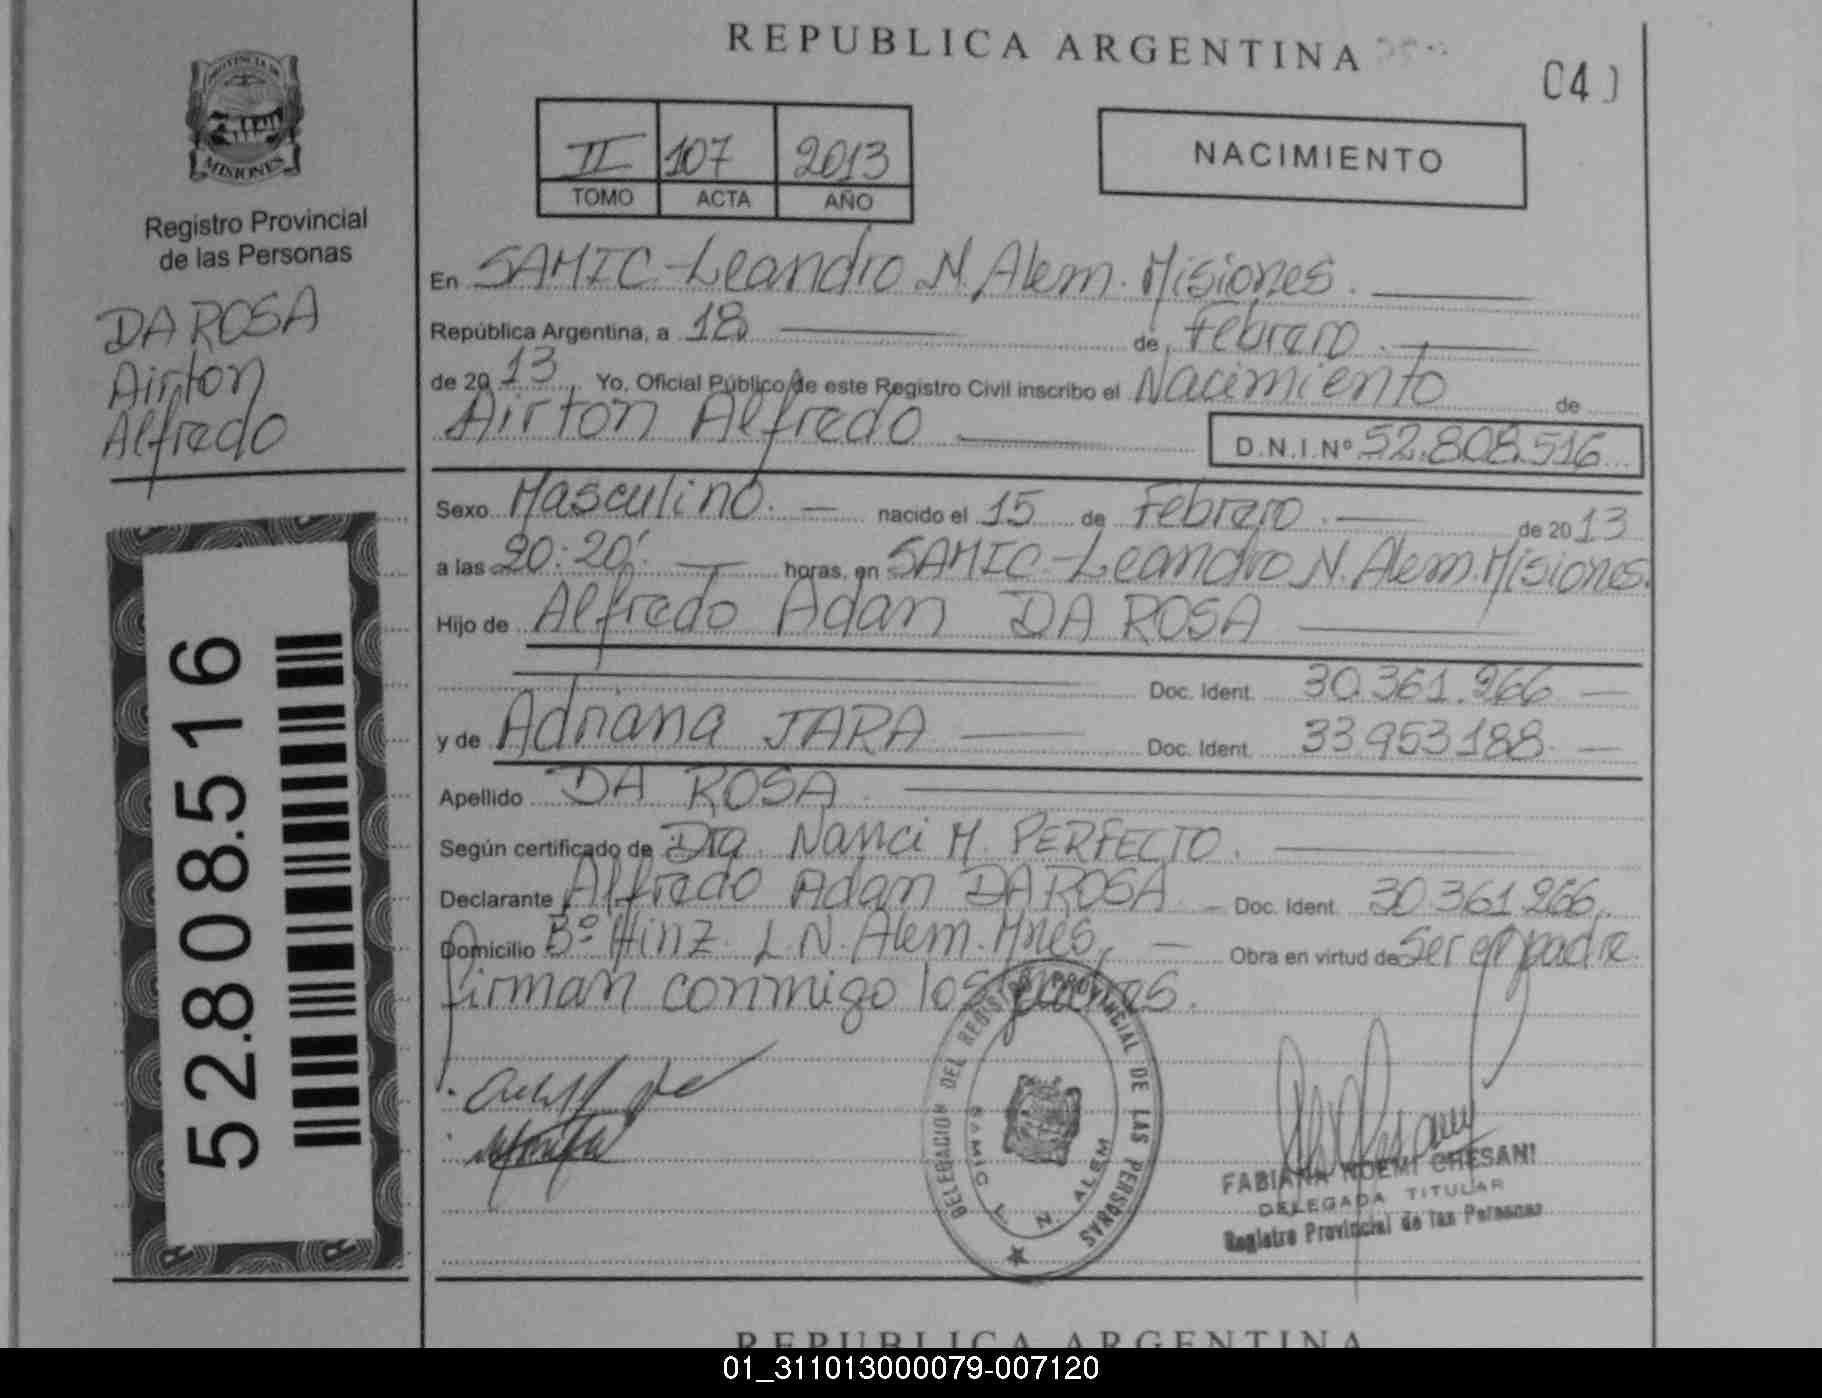 REPUBLICA ARGENTINA
04
PROVINCIA DE
MISIONES
Registro Provincial
de las Personas
DA ROSA
Airton
Alfredo
52.808.516
II 107 2013
TOMO ACTA AÑO
NACIMIENTO
En SAMIC-Leandro N. Alem. Misiones.
República Argentina, a 18 de Febrero
de 2013, Yo, Oficial Público de este Registro Civil inscribo el Nacimiento de
Airton Alfredo D.N.I.Nº 52.808.516
Sexo Masculino. nacido el 15 de Febrero de 2013
a las 20:20' horas, en SAMIC-Leandro N. Alem. Misiones.
Hijo de Alfredo Adan DA ROSA
Doc. Ident. 30.361.266
y de Adriana JARA Doc. Ident. 33953188
Apellido DA ROSA
Según certificado de Dra. Nanci M. PERFECTO.
Declarante Alfredo Adan DA ROSA Doc. Ident. 30361266
Domicilio Bº Hinz. L.N. Alem. Mnes, Obra en virtud de Ser el padre.
firman conmigo los padres.
DELEGACION DEL REGISTRO PROVINCIAL DE LAS PERSONAS
SAMIC L. N. ALEM
FABIANA NOEMI CHESANI
DELEGADA TITULAR
Registro Provincial de las Personas
REPUBLICA ARGENTINA
01_311013000079-007120